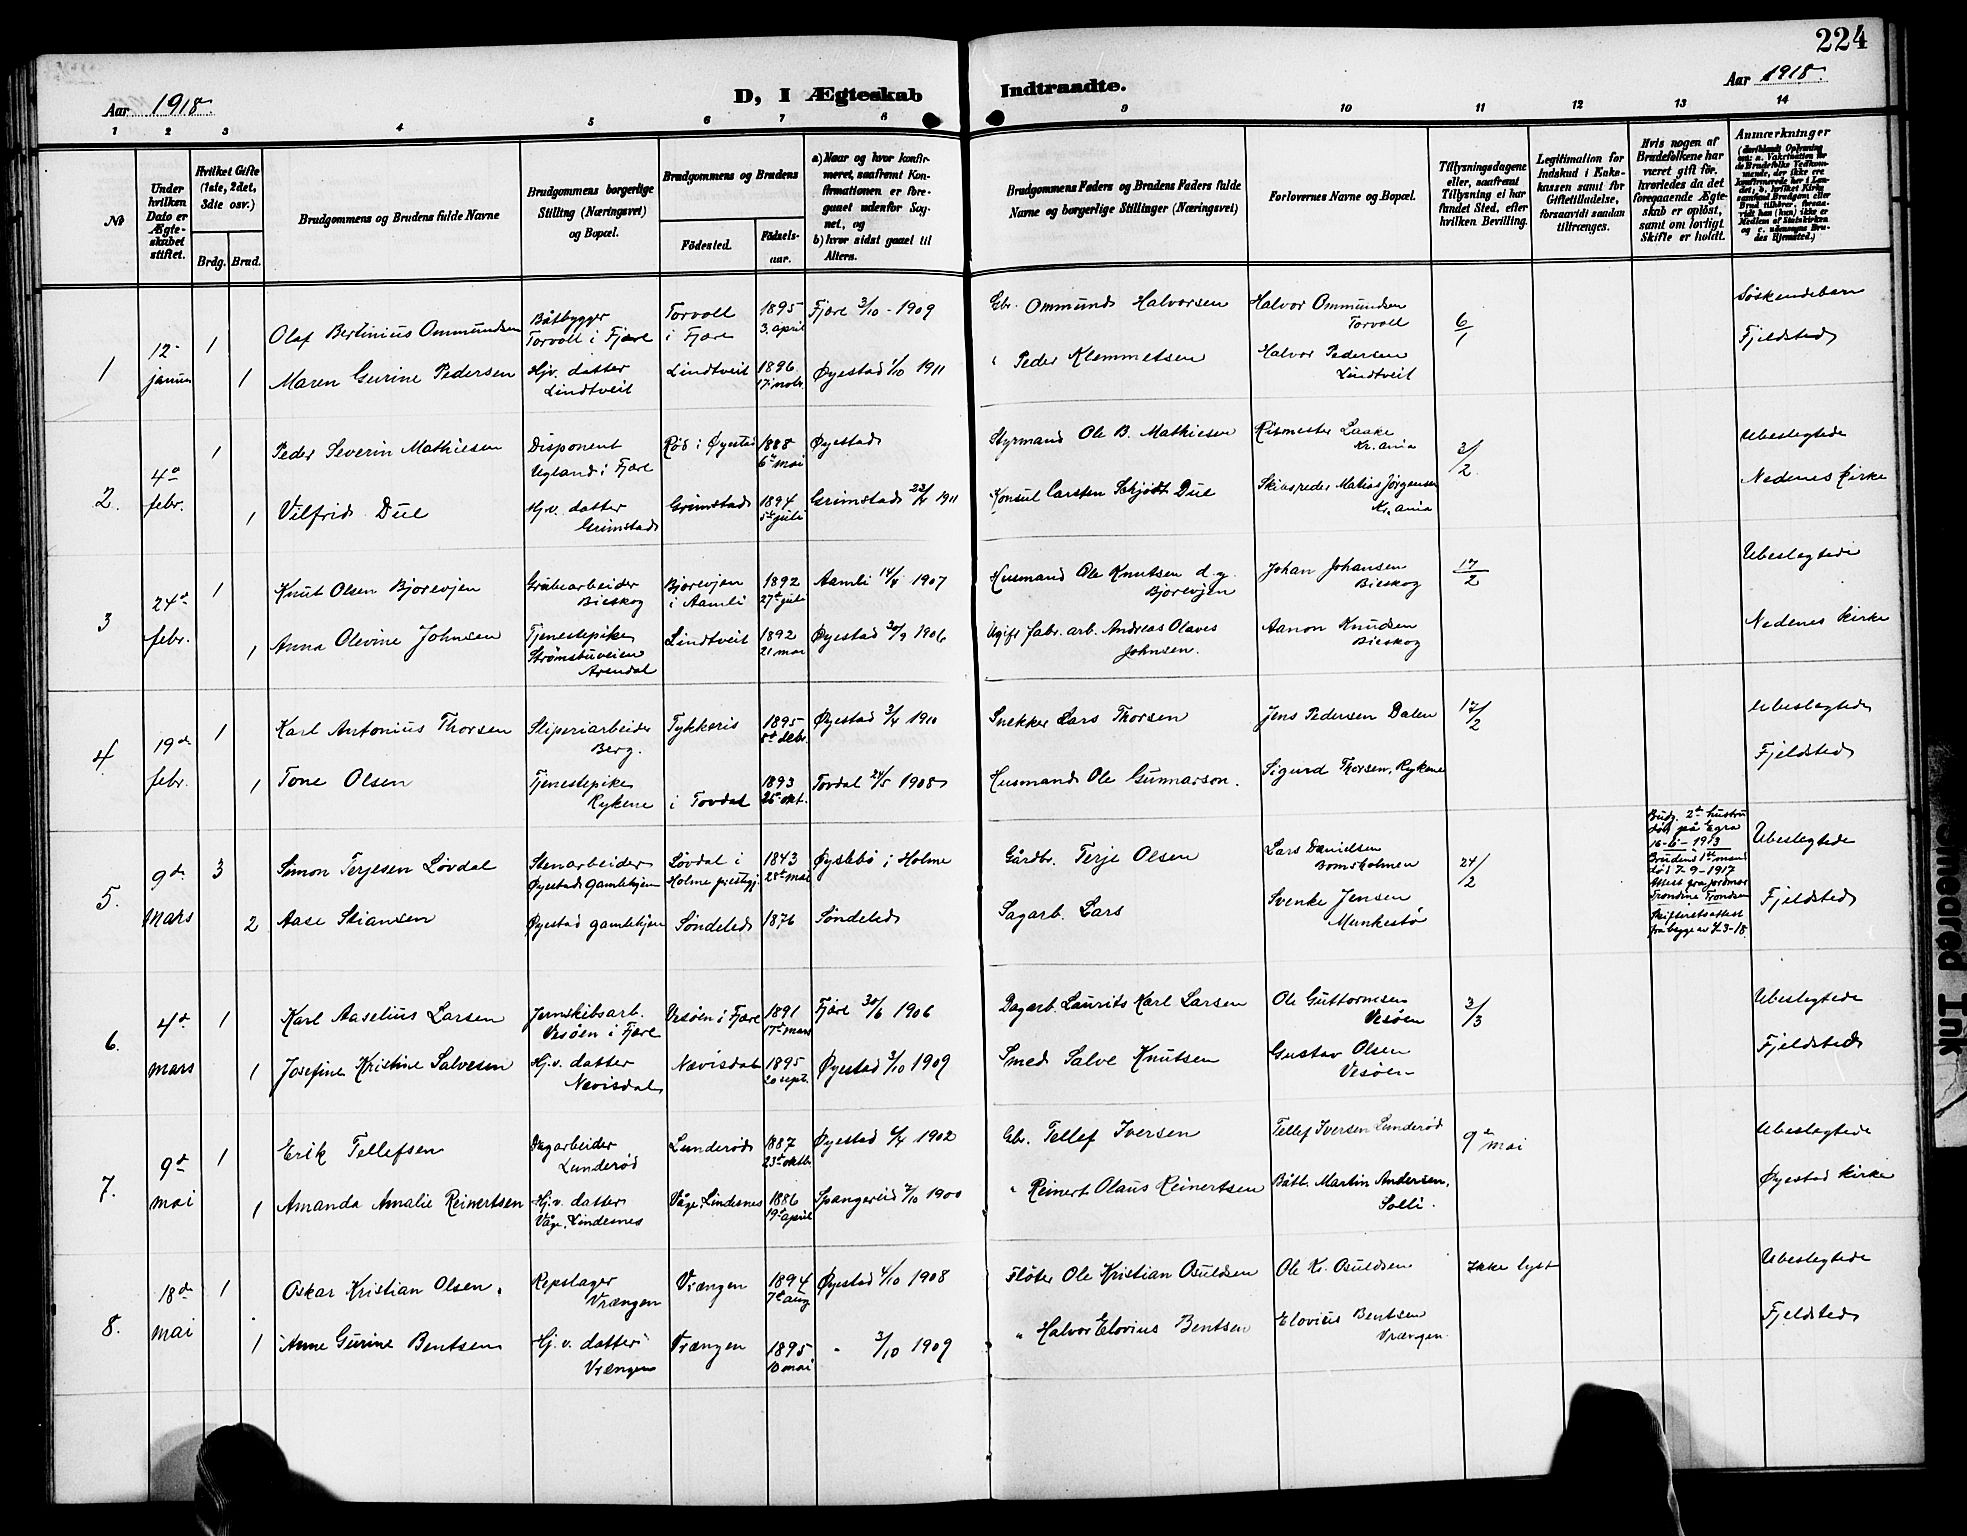 224
Aar 1918.
D, I Ægteskab Indtraadte.
Aar 1918.
1 2 3 4 5 6 7 8 9 10 11 12 13 14
No
Under hvilken Dato er Ægteskabet stiftet.
Hvilket Gifte (1ste, 2det, 3die osv.)
Brdg. Brud.
Brudgommens og Brudens fulde Navne
Brudgommens borgerlige Stilling (Næringsvei) og Bopæl.
Brudgommens og Brudens
Födested.
Födselsaar.
a) Naar og hvor konfirmeret, saafremt Konfirmationen er foregaaet udenfor Sognet, og
b) hvor sidst gaaet til Alters.
Brudgommens Faders og Brudens Faders fulde Navne og borgerlige Stillinger (Næringsvei)
Forlovernes Navne og Bopæl.
Tillysningsdagene eller, saafremt Tillysning ei har fundet Sted, efter hvilken Bevilling.
Legitimation for Indskud i Enkekassen samt for Giftetilladelse, forsaavidt saadan tiltrænges.
Hvis nogen af Brudefolkene har været gift för, hvorledes da det foregaaende Ægteskab er oplöst, samt om lovligt Skifte er holdt.
Anmærkninger
1 12- januar 1 Olaf Bertinius Ommundsen Båtbygger Torvolt i Fjære Torvolt i Fjære 1895 3. april Fjære 3/10 - 1909 Gbr. Ommund Halvorsen Halvor Ommundsen Torvolt 6/1 Søskendebarn
1 Maren Gurine Pedersen Hjv. datter Lindtveit Lindtveit 1896 17. novbr Øyestad 1/10 1911 " Peder Klemmetsen Halvor Pedersen Lindtveit Fjeldsted
2. 4de febr. 1 Peder Severin Mathiesen Disponent Ugland i Fjære Rød i Øyestad 1888 6te mai Øyestad Styrmand Ole B. Mathiesen Ritmester Laake Kr.ania 3/2 Ubeslegtede
1 Vilfrid Due Hj.v. datter Grimstad Grimstad 1894 5te juli Grimstad 23/4 1911 Konsul Carsten Schjødt Due Skibsreder Matias Jørgensen Kr.ania Nedenes kirke
3 24de febr. 1 Knut Olsen Bjorevjen Grubearbeider Bieskog Bjorevjen i Aamli 1892 27de juli Aamli 14/8 1907 Husmand Ole Knutsen d.y. Bjorevjen Johan Johansen Bieskog 17/2 Ubeslegtede
1 Anna Olevine Johnsen Tjenestepike Strømsbuveien Arendal Lindtveit 1892 21 mai Øyestad 30/9 1906 Ugift fabr. arb. Andreas Olaves Johnsen. Aanon Knudsen Bieskog Nedenes kirke
4. 19de febr. 1 Karl Antonius Thorsen Sliperiarbeider Berg. Tykkeris 1895 5te debr. Øyestad 3/4 1910 Snekker Lars Thorsen Jens Pedersen Dalen 17/2 Ubeslegtede
1 Tone Olsen Tjenestepike Rykene i Tovdal 1893 25- okt. Tovdal 24/5 1908 Husmand Ole Gunnarson. Sigurd Thorsen, Rykene Fjeldsted
5. 9de mars 3 Simon Terjesen Løvdal Stenarbeider Øyestad gamlehjem Løvdal i Holme prestegj. 1843 28de mai Øyslebø i Holme Gårdbr. Terje Olsen Lars Danielsen Bomsholmen 24/2 Brudg. 2den hustru død på Egra 16-6-1913 Ubeslegtede
2 Aase Stiansen Øyestad gamlehjem Søndeled 1876 Søndeled Sagarb. Lars Svenke Jensen Munkestø Brudens 1ste mand død 7-9-1917 Attest fra jordmor Trondine Trondsen Skifteretsattest fra begge av 7-3-18. Fjeldsted
6. 4de mars 1 Karl Aaselius Larsen Jernskibsarb. Vesøen i Fjære Vesøen i Fjære 1891 17de mars Fjære 30/6 1906 Dagarb. Laurits Karl Larsen Ole Guttormsen Vesøen 3/3 Ubeslegtede
1 Josefine Kristine Salvesen Hj.v. datter Nævisdal Nævisdal 1895 20 sept. Øyestad 3/10 1909 Smed Salve Knutsen Gustav Olsen Vesøen Fjeldsted
7. 9de mai 1 Erik Tellefsen Dagarbeider Lunderød Lunderød 1887 23de oktbr. Øyestad 6/4 1902 Gbr. Tellef Iversen Tellef Iversen Lunderød 9de mai Ubeslegtede
1 Amanda Amalie Reinertsen Hj.v. datter Våge, Lindesnes Våge, Lindesnes 1886 19de april Spangereid 7/10 1900 " Reinert Olaus Reinertsen Båtb. Martin Andersen, Solli. Øyestad kirke
8. 18de mai 1 Oskar Kristian Olsen. Repslager Vrængen Vrængen 1894 7de aug Øyestad 4/10 1908 Fløter Ole Kristian Osuldsen Ole Kr. Osuldsen Ikke lyst Ubeslegtede
1 Anne Gurine Bentsen Hj.v. datter Vrængen Vrængen 1895 10 mai " 3/10 1909 " Halvor Elovius Bentsen Elovius Bentsen Vrængen. Fjeldsted
Smeared Ink